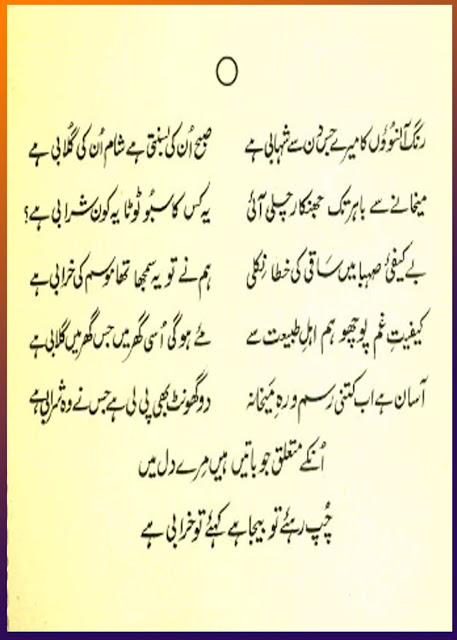 رنگ آنسوؤں کا میرے جس دن سے شہابی ہے صبح اُن کی بسنتی ہے شام اُن کی گلابی ہے
میخانے سے باہر تک جھنکار چلی آئی یہ کس کا سبُو ٹوٹا یہ کون شرابی ہے؟
بے کیفیٔ صہبا میں ساقی کی خطا نکلی ہم نے تو یہ سمجھا تھا موسم کی خرابی ہے
کیفیتِ غم پوچھو ہم اہلِ طبیعت سے مئے ہوگی اُسی گھر میں جس گھر میں گلابی ہے
آسان ہے اب کتنی رسم و رہِ میخانہ دو گھونٹ بھی پی لی ہے جس نے وہ شرابی ہے
اُنکے متعلق جو باتیں ہیں مرے دل میں
چُپ رہئے تو بیجا ہے کہئے تو خرابی ہے